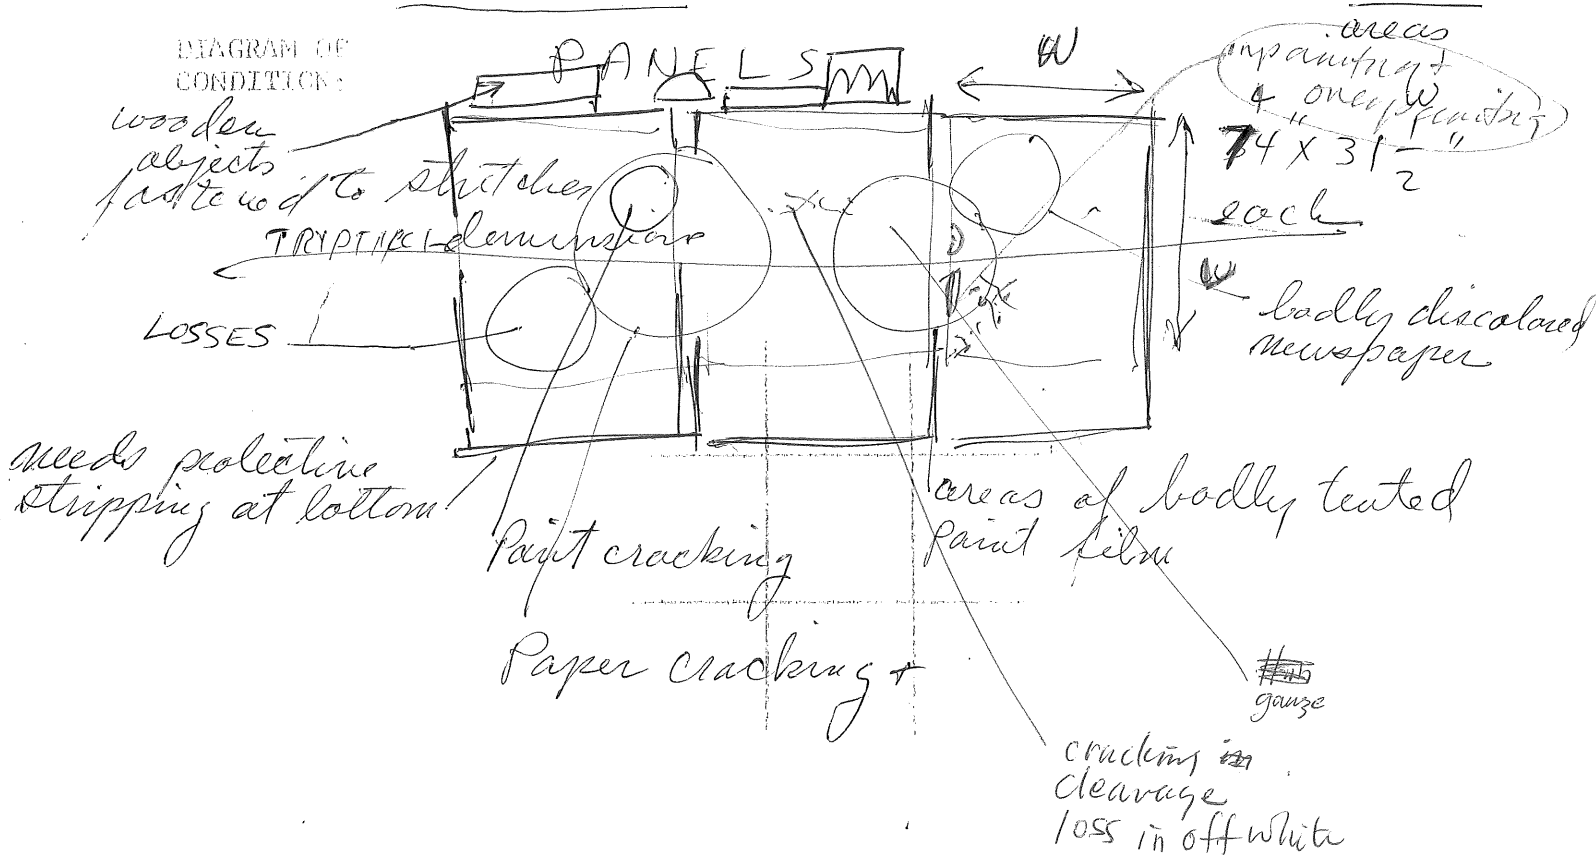 DIAGRAM OF
CONDITION:
PANELS
W
areas
inpainting +
" overpainting
74 X 31 1/2 "
each
W
wooden
objects
fastened to stretcher
TRYPTICH demensions
LOSSES
badly discolored
newspaper
needs protective
stripping at bottom
Paint cracking
areas of badly tented
paint film
Paper cracking +
gauze
cracking
cleavage
loss in off white